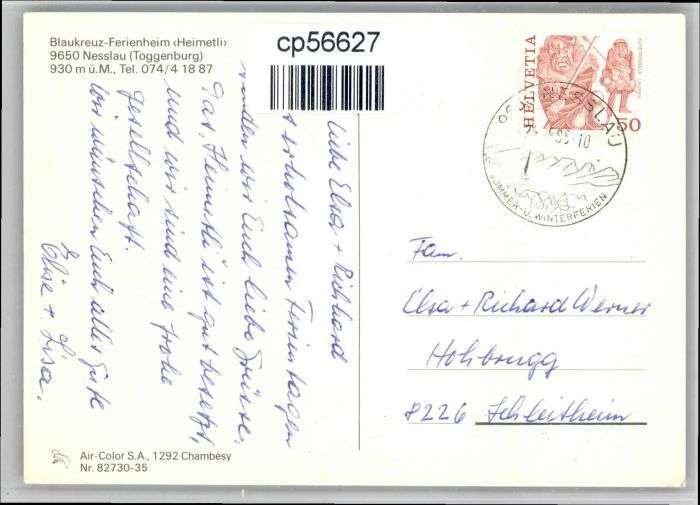 Blaukreuz-Ferienheim ‹Heimetli›
9650 Nesslau (Toggenburg)
930 m ü.M., Tel. 074/4 18 87
cp56627
HELVETIA
50
NESSLAU
SOMMER-U. WINTERFERIEN
Liebe Elsa + Richhard
erholsamen Ferientagen
senden wir Euch liebe Grüsse.
Das, Heimetli ist gut besetzt,
und wir sind eine frohe
Gesellschaft.
Wir wünschen Euch alles Gute
Elise + Lisa.
Fam.
Elsa + Richard Werner
Hohbrugg
8226 Schleitheim
Air-Color S.A., 1292 Chambésy
Nr. 82730-35